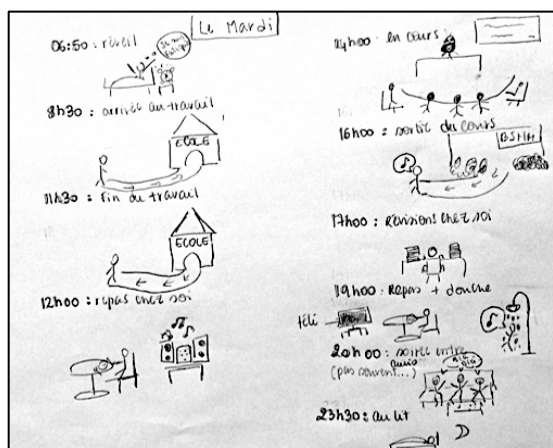 Le Mardi
06:50 : réveil
Je suis fatigué
8h30 : arrivée au travail
ECOLE
11h30 : fin du travail
ECOLE
12h00 : repas chez soi
14h00 : en cours
16h00 : sortie du cours
17h00 : Révisions chez soi
19h00 : Repas + douche
télé
20h00 : soirée entre
amis
(pas souvent...)
23h30 : au lit